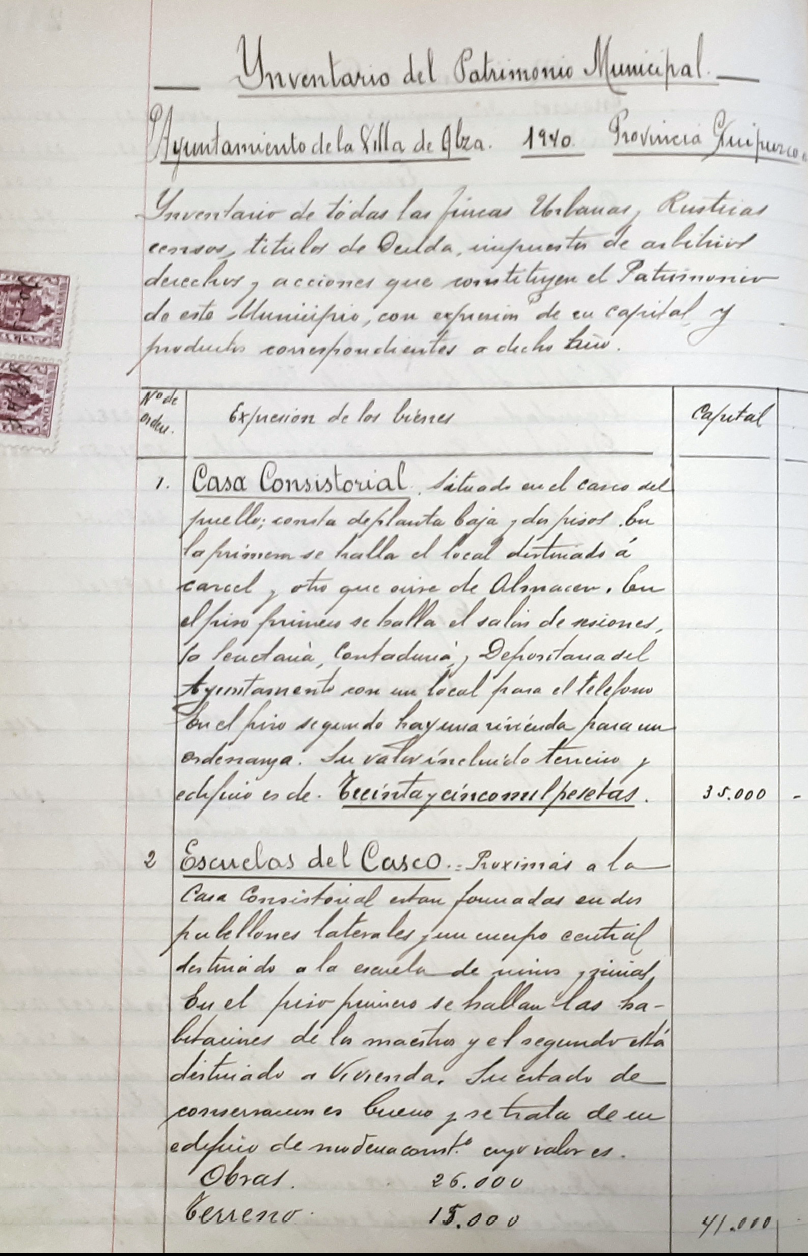 Ynventario del Patrimonio Municipal.
Ayuntamiento de la Villa de Alza. 1940. Provincia Guipuzcoa
Ynventario de todas las fincas Urbanas, Rusticas
censos, titulos de Deuda, impuestos de arbitrios
derechos y acciones que constituyen el Patrimonio
de este Municipio, con expresión de su capital, y
productos correspondientes a dicho Año.
Nº de orden. Expresion de los bienes Capital
1. Casa Consistorial. Situado en el casco del
pueblo; consta de planta baja y dos pisos. En
la primera se halla el local destinado á
carcel y otro que sirve de Almacen. En
el piso primero se halla el salón de sesiones,
la Secretaria, Contaduria, y Depositaria del
Ayuntamiento con un local para el teléfono
En el piso segundo hay una vivienda para un
ordenanza. Su valor incluido terreno y
edificio es de. Treinta y cinco mil pesetas. 35.000 -
2 Escuelas del Casco.= Proximas a la
Casa Consistorial estan formadas en dos
pabellones laterales y un cuerpo central
destinado a la escuela de niños y niñas,
En el piso primero se hallan las ha-
bitaciones de los maestros y el segundo está
destinado a Vivienda. Su estado de
conservacion es bueno y se trata de un
edificio de moderna constº cuyo valor es.
Obras. 26.000
Terreno. 15.000 41.000